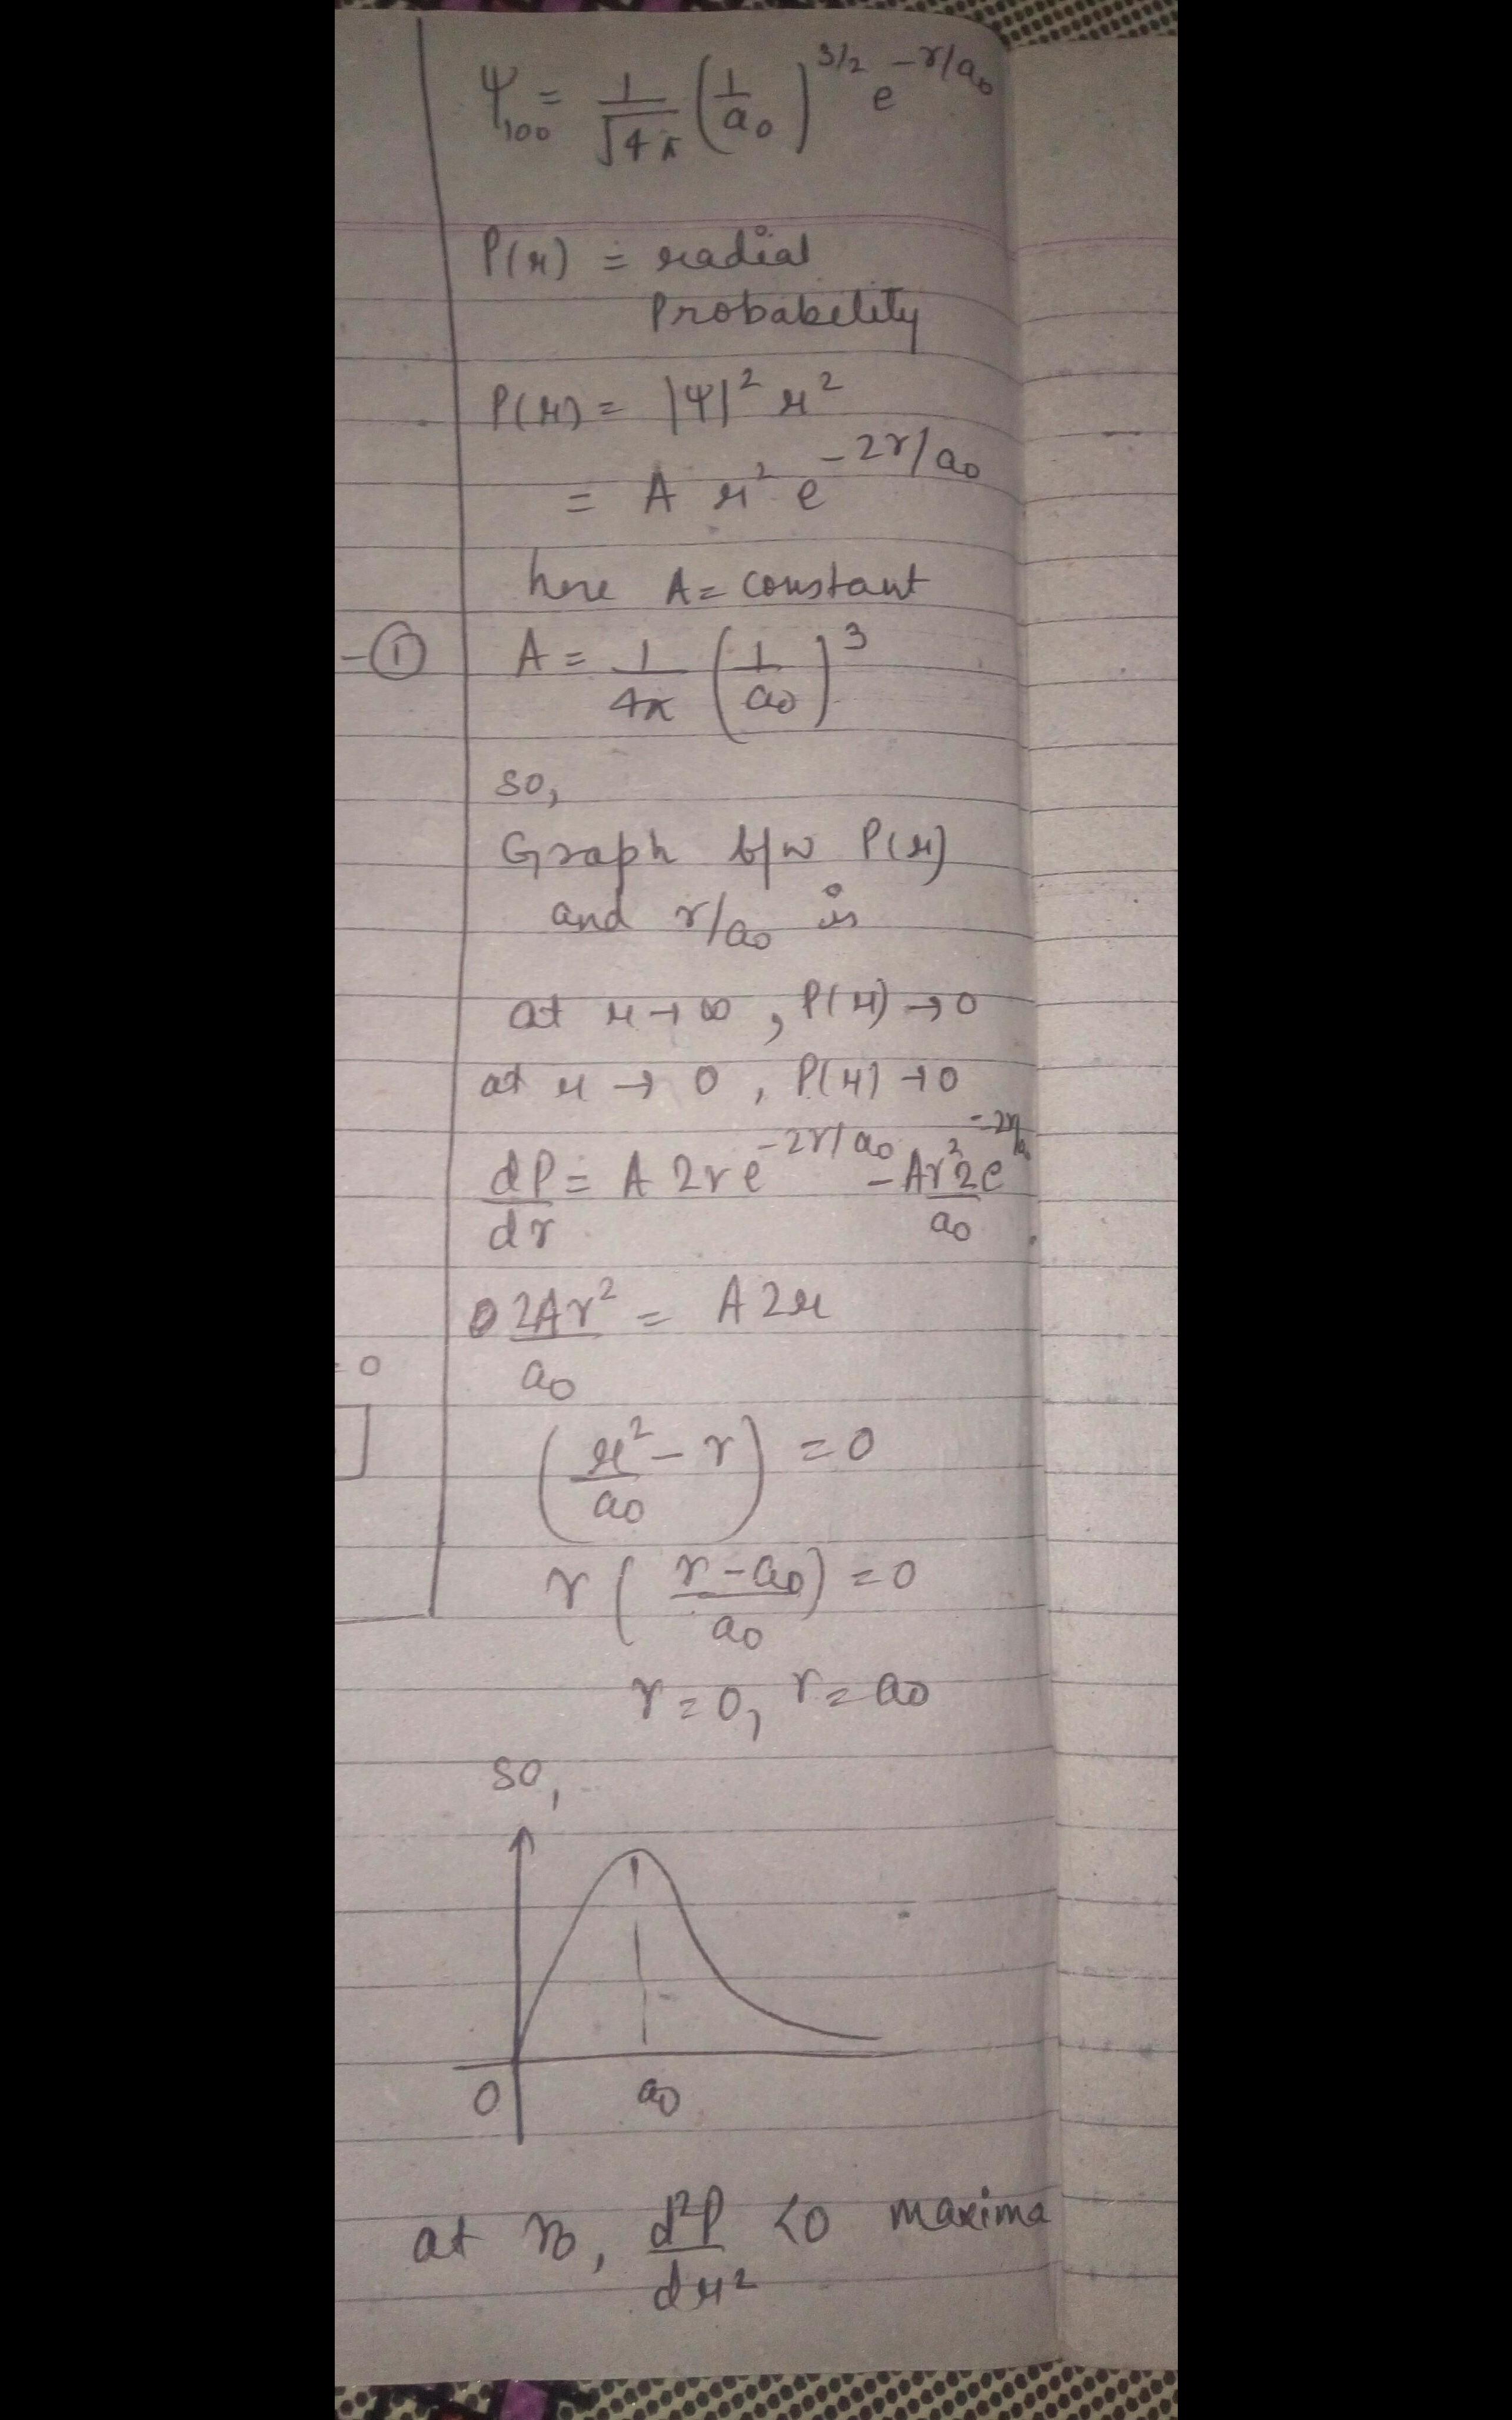 Ψ₁₀₀ = 1/√4π (1/a₀)^3/2 e^-r/a₀
P(r) = radial
Probability
P(r) = |Ψ|² r²
= A r² e^-2r/a₀
here A = constant
-① A = 1/4π (1/a₀)³
so,
Graph b/w P(r)
and r/a₀ is
at r → ∞, P(r) → 0
at r → 0, P(r) → 0
dP/dr = A 2r e^-2r/a₀ - Ar² 2e^-2r/a₀ / a₀
2Ar²/a₀ = A 2r
= 0
(r²/a₀ - r) = 0
r ( r - a₀ / a₀ ) = 0
r = 0, r = a₀
so,
0 a₀
at r₀, d²P/dr² <0 maxima